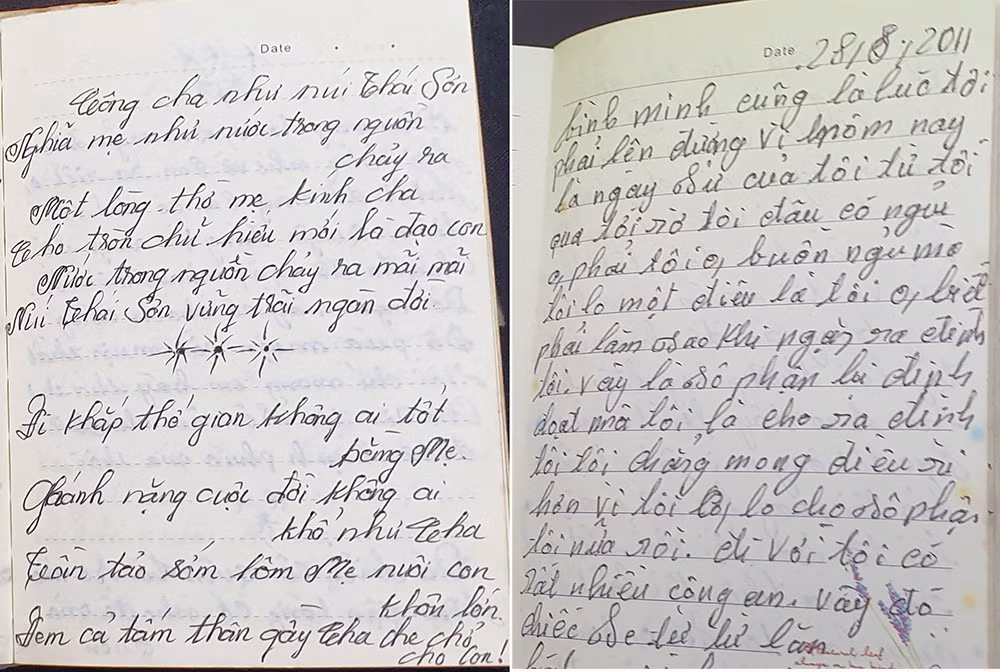 Date
Công cha như núi Thái Sơn
Nghĩa mẹ như nước trong nguồn
chảy ra
Một lòng thờ mẹ kính cha
Cho tròn chữ hiếu mới là đạo con
Nước trong nguồn chảy ra mãi mãi
Núi Thái Sơn vững trãi ngàn đời
Đi khắp thế gian không ai tốt
bằng Mẹ.
Ghánh nặng cuộc đời không ai
khổ như Cha
Tần tảo sớm hôm Mẹ nuôi con
khôn lớn.
Đem cả tấm thân gày Cha che chở
cho con!
Date 28/8/2011
bình minh cũng là lúc tôi
phải lên đường vì hôm nay
là ngày sử của tôi từ tối
qua tới giờ tôi đâu có ngủ
phải tôi buồn ngủ mà
tôi lo một điều là tôi biết
phải làm sao khi ngày ra đình
tôi. vậy là số phận lại định
đoạt mà tôi là cho ra đình
tôi tôi chẳng mong điều gì
hơn vì tôi lo cho số phận
tôi nữa rồi. đi với tôi có
rất nhiều công an. vậy đó
chiếc se từ từ lăn